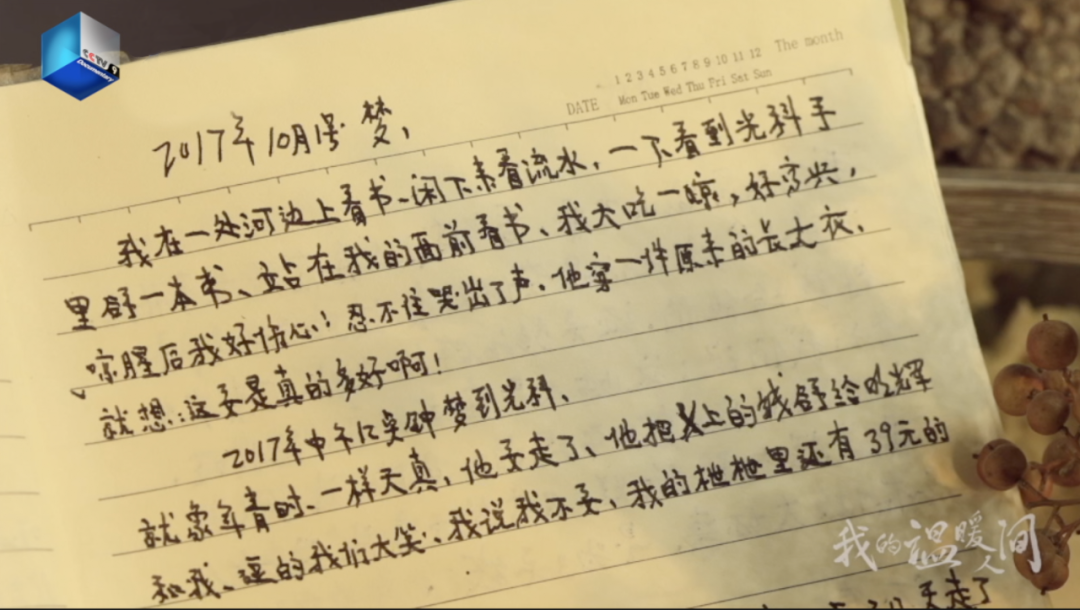 CCTV 9
Documentary
1 2 3 4 5 6 7 8 9 10 11 12 The month
DATE Mon Tue Wed Thu Fri Sat Sun
2017年10月1号 梦,
我在一处河边上看书、闲下来看流水,一下看到光科手
里舒一本书、站在我的面前看书、我大吃一惊,好高兴,
惊醒后我好伤心!忍不住哭出了声、他穿一件原来的长大衣、
就想:这要是真的多好啊!
2017年中午12点钟梦到光科、
就象年青时、一样天真,他要走了、他把身上的钱舒给 辉
和我、逗的我们大笑、我说我不要,我的枻枻里还有39元的
走了
我的温暖人间